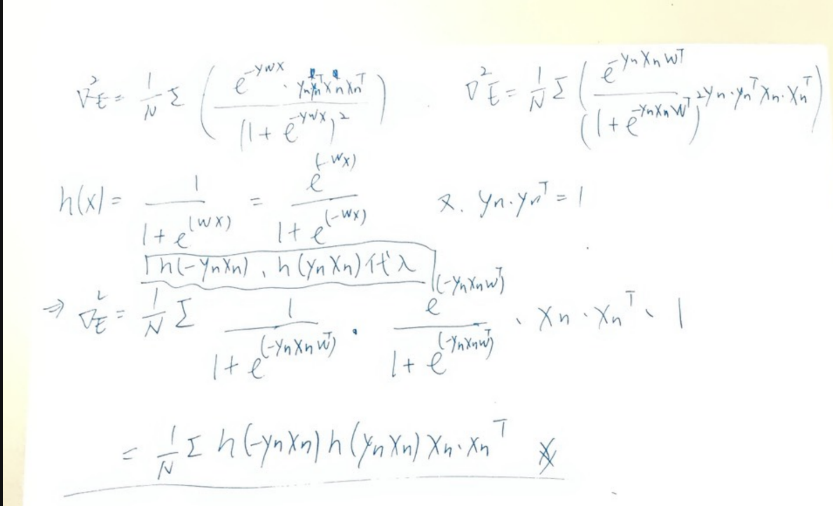 ∇²E = 1/N Σ ( e^(-ywx) · ynyn^T xn xn^T / (1+e^(-ywx))² ) . ∇²E = 1/N Σ ( e^(-ynxnw^T) / (1+e^(-ynxnw^T))² yn·yn^T xn·xn^T )
h(x) = 1 / 1+e^(wx) = e^(-wx) / 1+e^(-wx) 又. yn·yn^T = 1
h(-ynxn)、h(ynxn)代入
⇒ ∇²E = 1/N Σ 1 / 1+e^(-ynxnw^T) · e^(-ynxnw^T) / 1+e^(-ynxnw^T) · xn·xn^T · 1
= 1/N Σ h(-ynxn) h(ynxn) xn·xn^T